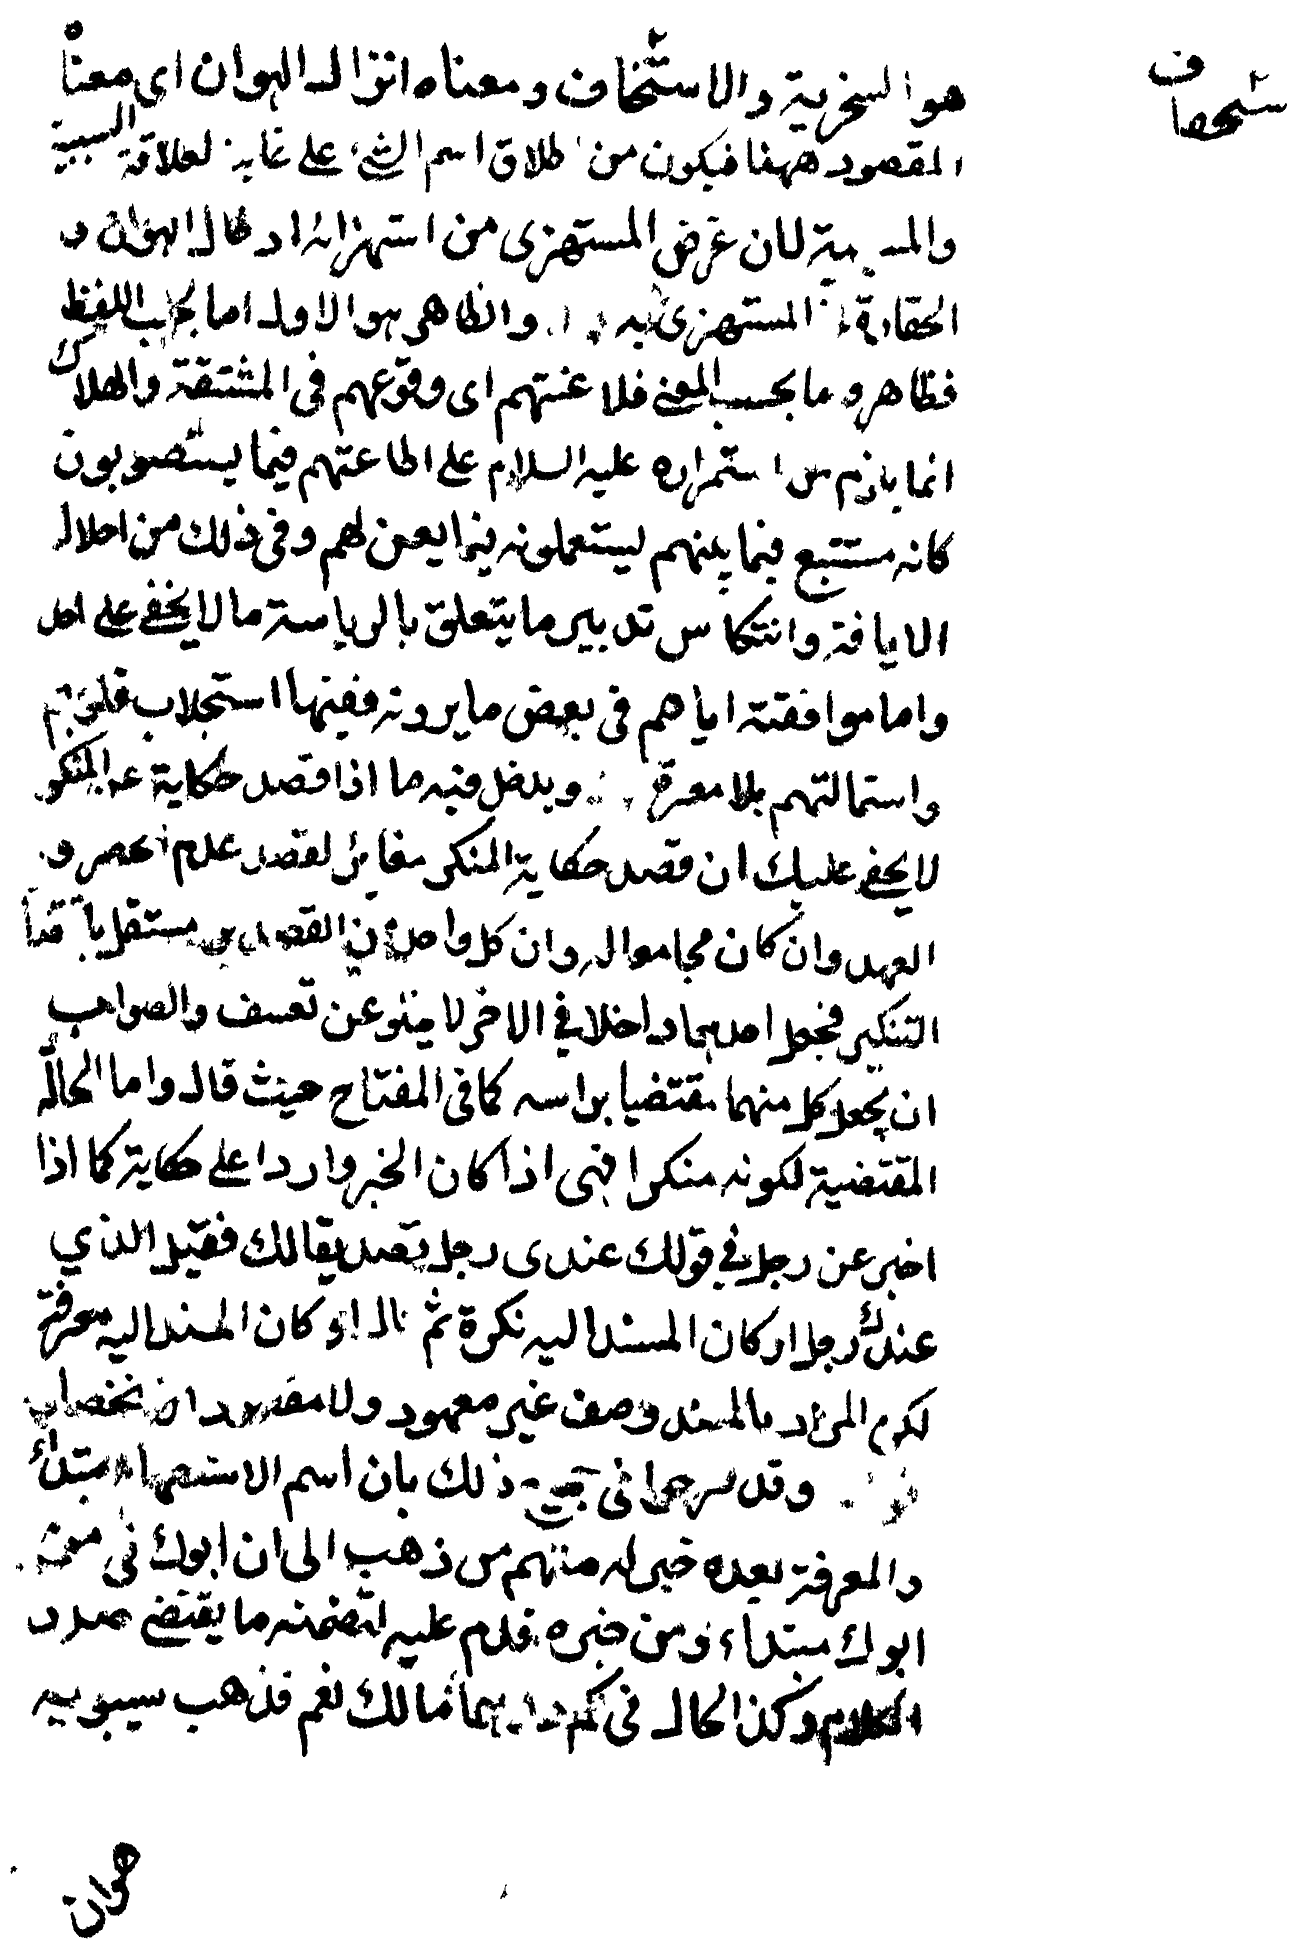 ستخفاف
هو السخرية والاستخفاف ومعناه انزال الهوان اى معناه
المقصود ههنا فيكون من اطلاق اسم الشئ على غايته لعلاقة السببية
والمسببية لان غرض المستهزى من استهزائه ادخال الهوان و
الحقارة المستهزى به والظاهر هو الاول اما بحسب اللفظ
فظاهر وما بحسب المعنى فلا عنتهم اى وقوعهم فى المشقة والهلاك
انما يلزم من استمراره عليه السلام على اطاعتهم فيما يستصوبون
كانه مستتبع فيما بينهم يستعملونه فيما يعن لهم وفى ذلك من اخلال
الايافة وانتكاس تدبير ما يتعلق بالرياسة ما لا يخفى على احد
واما موافقته اياهم فى بعض ما يرونه ففيها استجلاب قلوبهم
واستمالتهم بلا معرة ويدخل فيه ما اذا قصد حكاية عن المنكر
لا يخفى عليك ان قصد حكاية المنكر مغاير لقصد عدم الحصر و
العهد وان كان مجامعا له وان كل واحد من القصدين مستقل باقتضا
التنكير فجعل احدهما داخلا فى الاخر لا يخلو عن تعسف والصواب
ان يجعل كل منهما مقتضيا براسه كما فى المفتاح حيث قال واما الحالة
المقتضية لكونه منكرا فهى اذا كان الخبر واردا على حكاية كما اذا
اخبر عن رجل فى قولك عندى رجل تصديقا لك فقيل الذي
عندك رجل او كان المسند اليه نكرة ثم قال او كان المسند اليه معرفة
لكن المراد بالمسند وصف غير معهود ولا مقصود الانحصار
وقد صرحوا فى جميع ذلك بان اسم الاستفهام مبتداء
والمعرفة بعده خبر له منهم من ذهب الى ان ابوك فى من
ابوك مبتداء ومن خبره قدم عليه لتضمنه ما يقتضى صدر
الكلام وكذا الحال فى كم درهما مالك نعم فذهب سيبويه
هوان